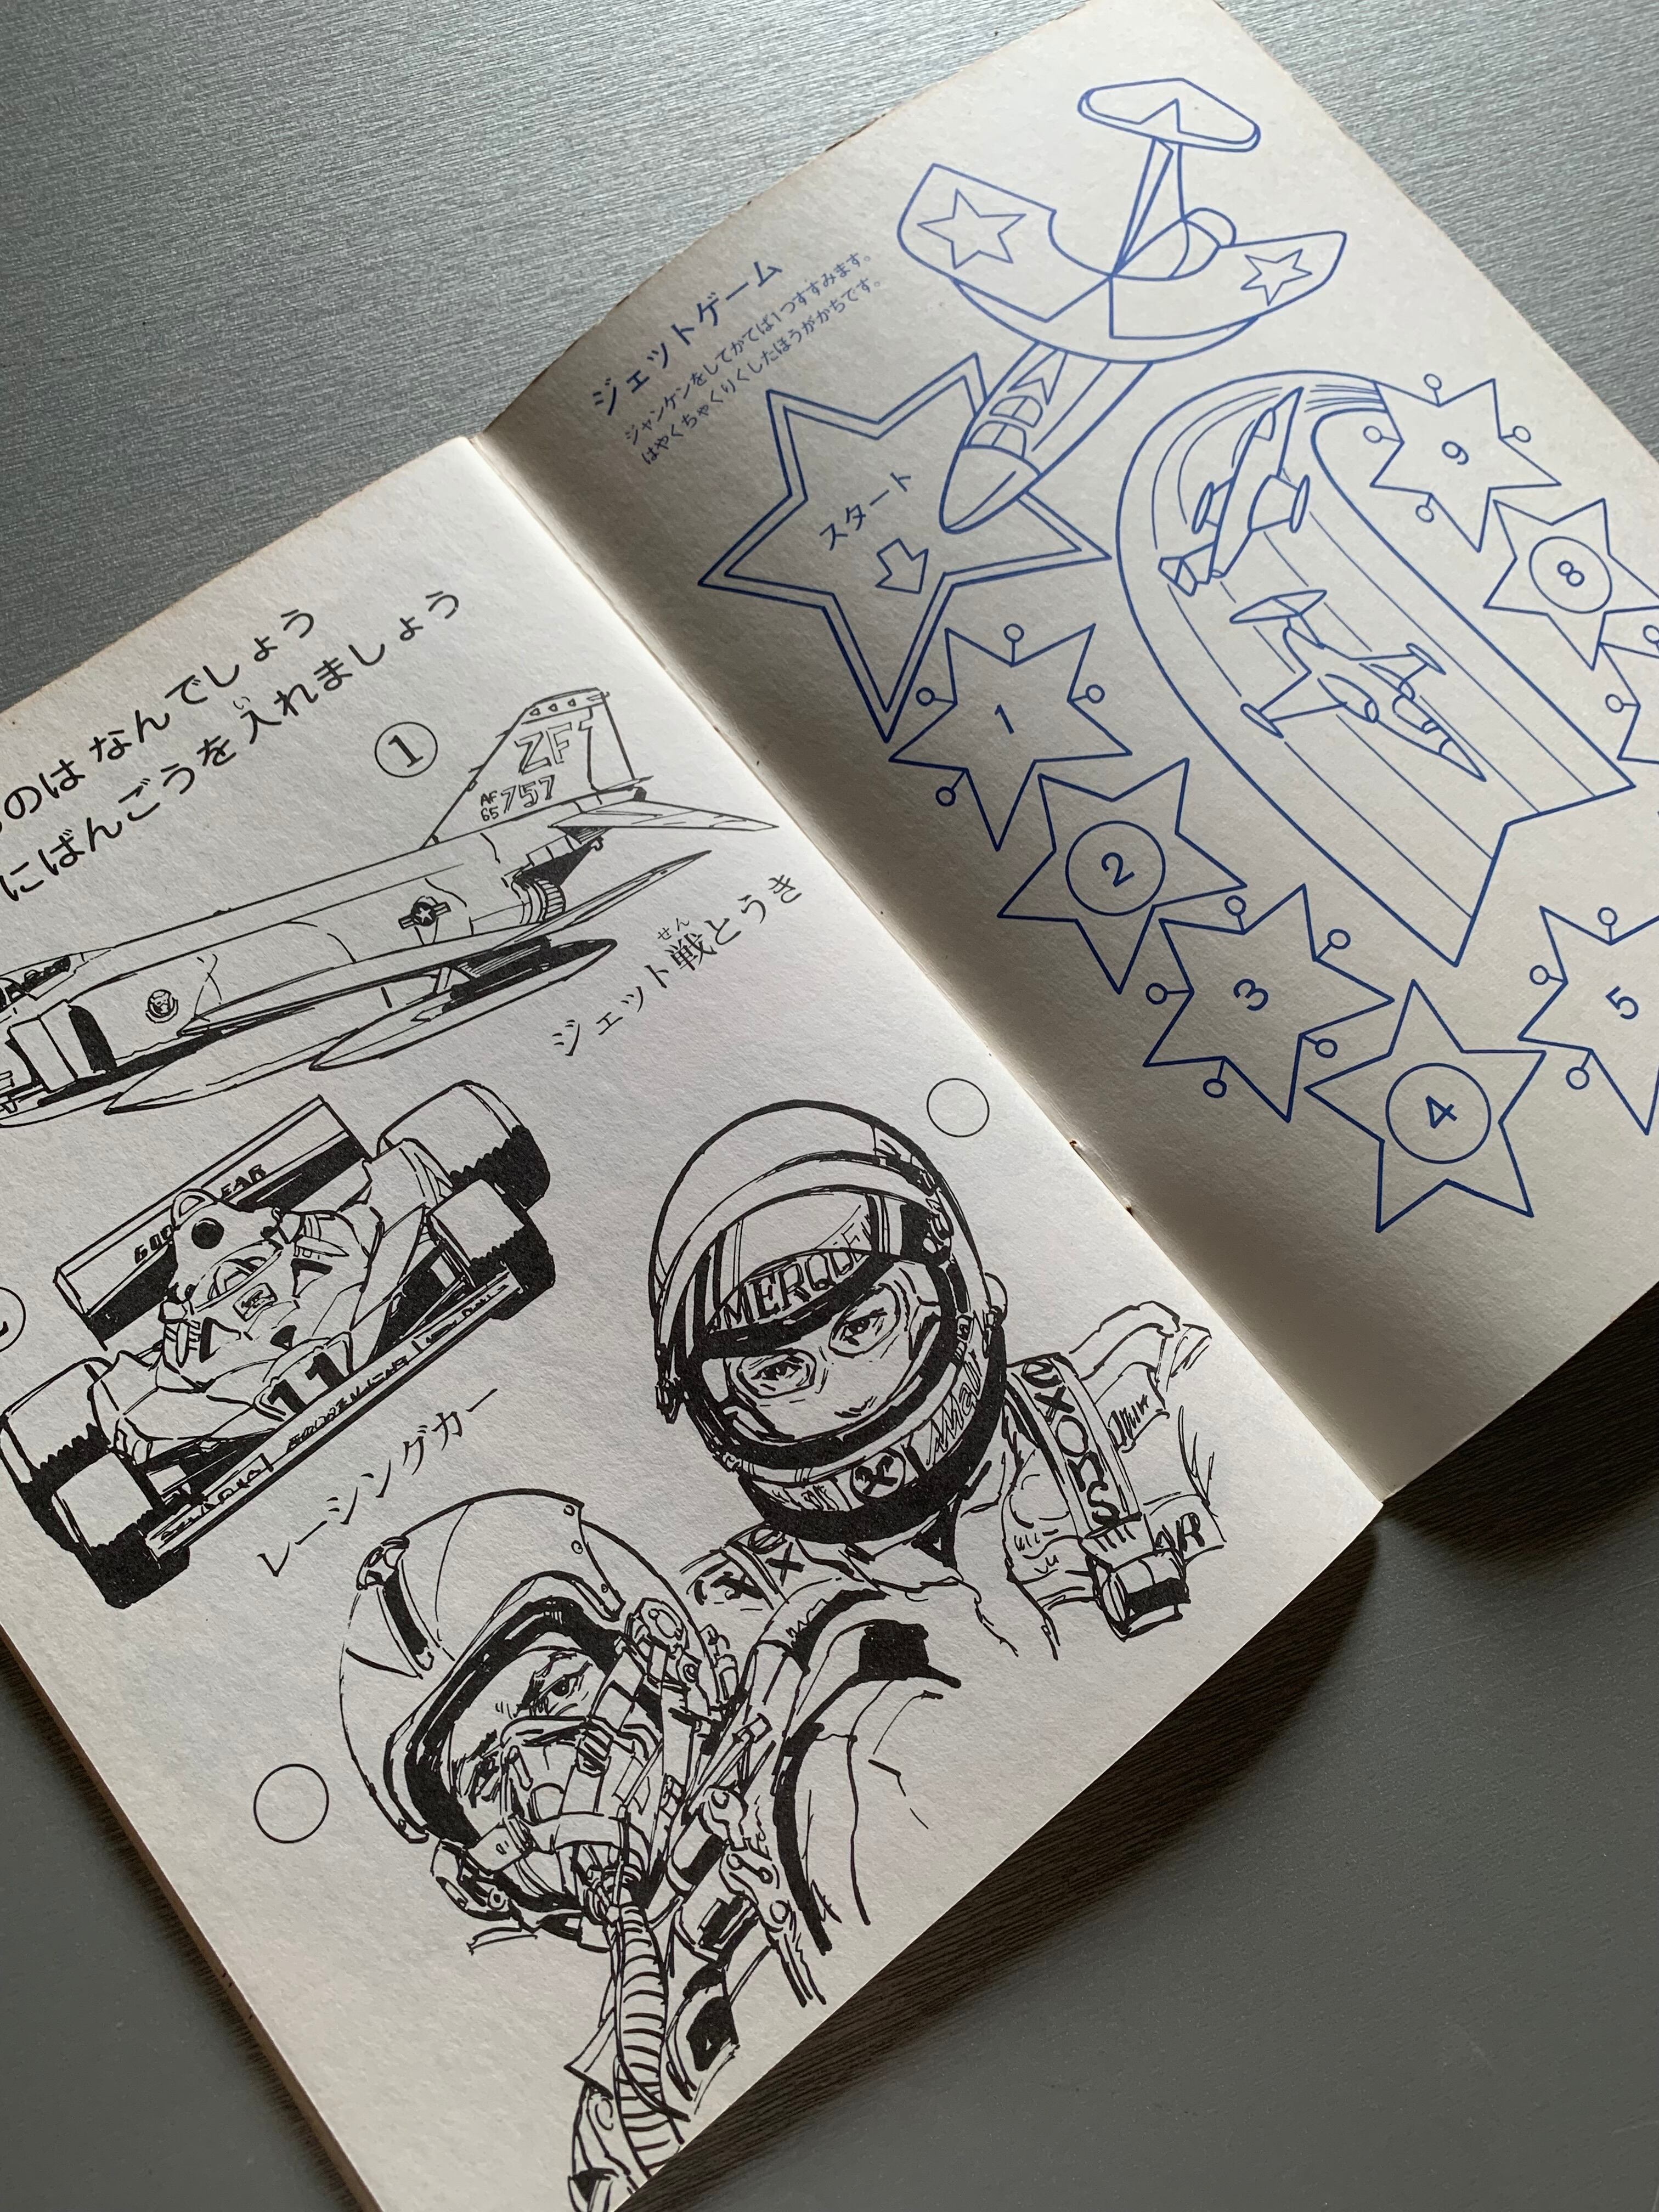 のは なんでしょう
にばんごうを入れましょう
い
1
ZF
AF
65 757
ジェット戦とうき
せん
レーシングカー
11
MERQUEN
ジェットゲーム
ジャンケンをしてかてば1つすすみます。
はやくちゃくりくしたほうがかちです。
スタート
1
2
3
4
5
8
9